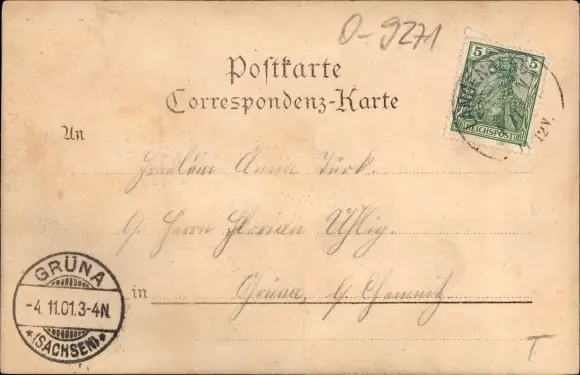 O-9271
Postkarte
Correspondenz-Karte
5 5
REICHSPOST
12V.
An
Fräulein Anna Türk.
b/ Herrn Florian Uhlig.
in Grüna, b/ Chemnitz
GRÜNA
-4.11.01.3-4N.
*(SACHSEN)*
T